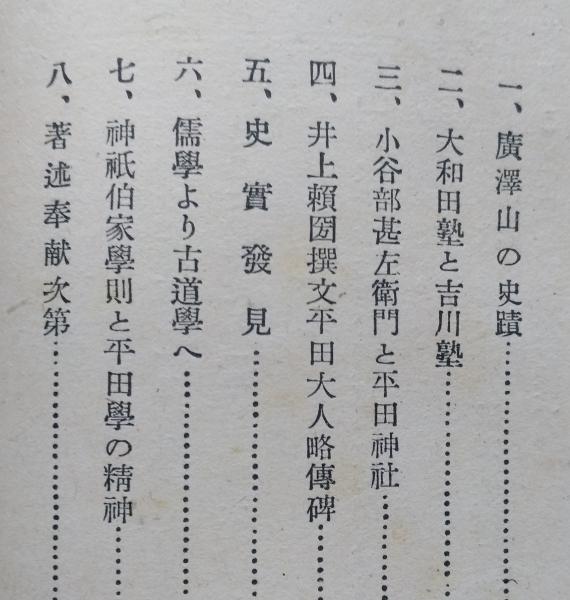 一、廣澤山の史蹟
二、大和田塾と吉川塾
三、小谷部甚左衞門と平田神社
四、井上賴圀撰文平田大人略傳碑
五、史實發見
六、儒學より古道學へ
七、神祇伯家學則と平田學の精神
八、著述奉献次第